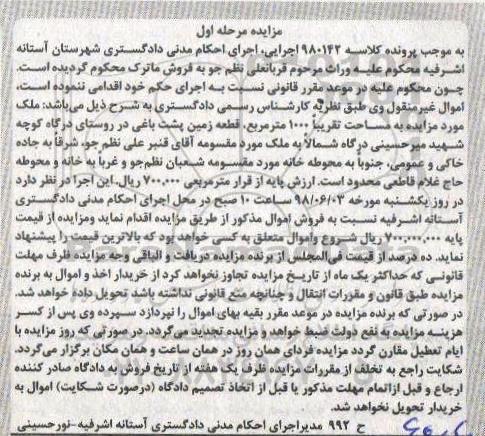 مزایده مرحله اول
به موجب پرونده کلاسه ۹۸۰۱۴۲ اجرایی، اجرای احکام مدنی دادگستری شهرستان آستانه
اشرفیه محکوم علیه وراث مرحوم قربانعلی نظم جو به فروش ماترک محکوم گردیده است.
چون محکوم علیه در موعد مقرر قانونی نسبت به اجرای حکم خود اقدامی ننموده است،
اموال غیرمنقول وی طبق نظریه کارشناس رسمی دادگستری به شرح ذیل می‌باشد: ملک
مورد مزایده به مساحت تقریباً ۱۰۰۰ مترمربع، قطعه زمین پشت باغی در روستای درگاه کوچه
شهید میرحسینی درگاه شمالاً به ملک مورد مقسومه آقای قنبر علی نظم جو، شرقاً به جاده
خاکی و عمومی، جنوباً به محوطه خانه مورد مقسومه شعبان نظم‌جو و غرباً به خانه و محوطه
حاج غلام قاطعی محدود است. ارزش پایه از قرار مترمربعی ۷۰۰,۰۰۰ ریال. این اجرا در نظر دارد
در روز یکشنبه مورخه ۹۸/۰۶/۰۳ ساعت ۱۰ صبح در محل اجرای احکام مدنی دادگستری
آستانه اشرفیه نسبت به فروش اموال مذکور از طریق مزایده اقدام نماید ومزایده از قیمت
پایه ۷۰۰,۰۰۰,۰۰۰ ریال شروع واموال متعلق به کسی خواهد بود که بالاترین قیمت را پیشنهاد
نماید. ده درصد از قیمت فی‌المجلس از برنده مزایده دریافت و الباقی وجه مزایده ظرف مهلت
قانونی که حداکثر یک ماه از تاریخ مزایده تجاوز نخواهد کرد از خریدار اخذ و اموال به برنده
مزایده طبق قانون و مقررات انتقال و چنانچه منع قانونی نداشته باشد تحویل داده خواهد شد.
در صورتی که برنده مزایده در موعد مقرر بقیه بهای اموال را نپردازد سپرده وی پس از کسر
هزینه مزایده به نفع دولت ضبط خواهد و مزایده تجدید می‌گردد. در صورتی که روز مزایده با
ایام تعطیل مقارن گردد مزایده فردای همان روز در همان ساعت و همان مکان برگزار می‌گردد.
شکایت راجع به تخلف از مقررات مزایده ظرف یک هفته از تاریخ فروش به دادگاه صادر کننده
ارجاع و قبل ازاتمام مهلت مذکور یا قبل از اتخاذ تصمیم دادگاه (درصورت شکایت) اموال به
خریدار تحویل نخواهد شد.
ح ۹۹۲ مدیراجرای احکام مدنی دادگستری آستانه اشرفیه-نورحسینی